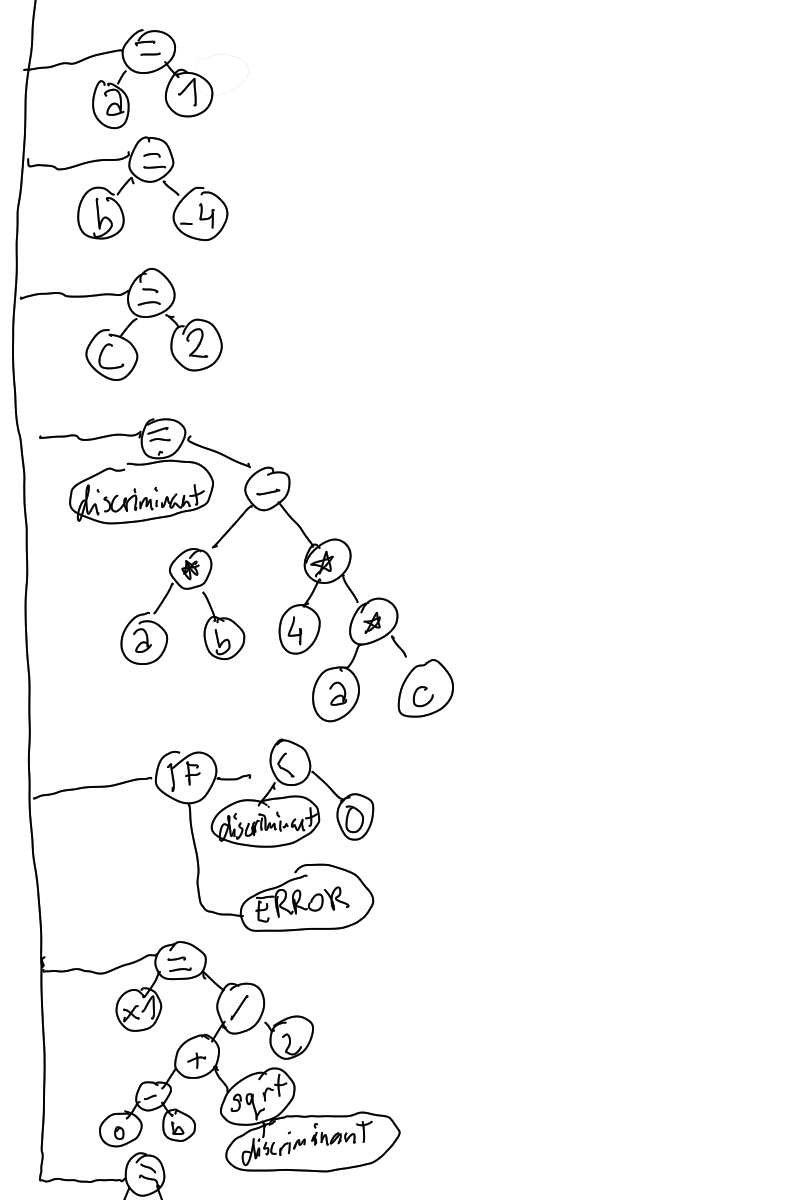 =
a 1
=
b -4
=
c 2
=
discriminant -
* *
a b 4 *
a c
IF <
discriminant 0
ERROR
=
x1 /
+ 2
- sqrt
0 b
discriminant
=